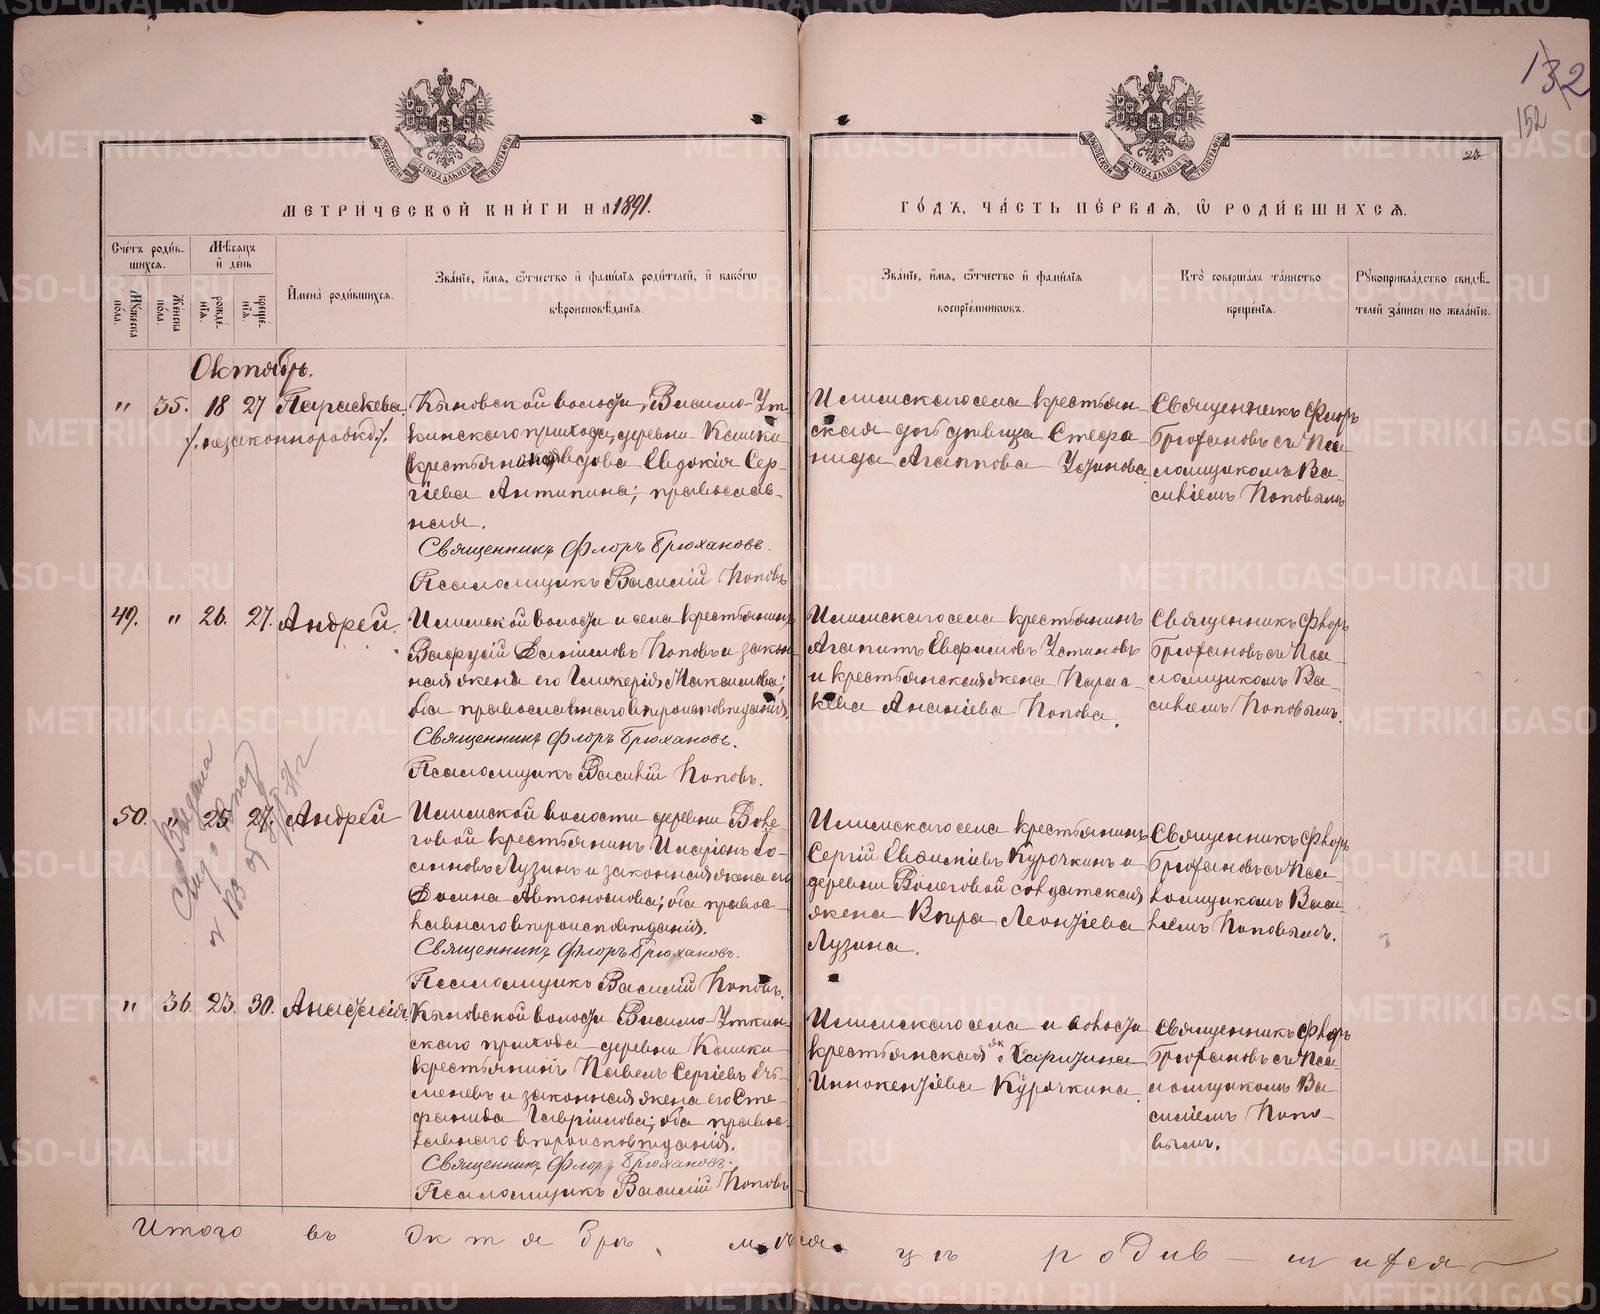 132
152
23
МЕТРИ́ЧЕСКОЙ КНИ́ГИ НА 1891.
ГО́ДЪ, ЧА́СТЬ ПЕ́РВАЯ, Ѡ РОДИ́ВШИХСЯ.
Сче́тъ роди́вшихся.
Мѣ́сяцъ и де́нь
Му́жеска по́ла.
Же́нска по́ла.
рожде́нїя.
креще́нїя.
Имена̀ роди́вшихся.
Зва́нїе, и́мя, ѻ́тчество и фами́лїя роди́телей, и како́гѡ
вѣроисповѣ́данїя.
Зва́нїе, и́мя, ѻ́тчество и фами́лїя
воспрїе́мникѡвъ.
Кто̀ соверша́лъ та́инство
креще́нїя.
Рукоприкла́дство свидѣ́-
телей за́писи по жела́нїю.
Октябрь.
" 35. 18 27 Параскева
/незаконнорожд./
Кыновской волости, Висимо-Ут-
кинскаго прихода, деревни Кашки
крестьянская вдова Евдокія Сер-
гіева Антипина; православ-
ная.
Священникъ Флоръ Брюхановъ.
Псаломщикъ Василій Поповъ
Илимскаго села крестьян-
ская дочь дѣвица Стефа-
нида Агапитова Устинова
Священникъ Флоръ
Брюхановъ съ Пса-
ломщикомъ Ва-
силіемъ Поповымъ
49. " 26. 27. Андрей.
Илимской волости и села крестьянинъ
Даніиловъ Поповъ и закон-
ная жена его Гликерія Максимова;
оба православнаго вѣроисповѣданія.
Священникъ Флоръ Брюхановъ.
Псаломщикъ Василій Поповъ.
Илимскаго села крестьянинъ
Агапитъ Евфимовъ Устиновъ
и крестьянская жена Парас-
кева Ананіева Попова.
Священникъ Флоръ
Брюхановъ съ Пса-
ломщикомъ Ва-
силіемъ Поповымъ.
50. " 25 27. Андрей
Илимской волости деревни Воле-
говой крестьянинъ Иларіонъ
Лузинъ и законная жена его
Домна Автономова; оба правос-
лавнаго вѣроисповѣданія.
Священникъ Флоръ Брюхановъ.
Псаломщикъ Василій Поповъ.
Илимскаго села крестьянинъ
Сергій Курочкинъ и
деревни Волеговой солдатская
жена Вѣра Леонтіева
Лузина.
Священникъ Флоръ
Брюхановъ съ Пса-
ломщикомъ Васи-
ліемъ Поповымъ.
" 36. 23. 30. Анастасія
Кыновской волости Висимо-Уткин-
скаго прихода деревни Кашки
крестьянинъ Павелъ Сергіевъ
и законная жена его Сте-
фанида Гавріилова; оба правос-
лавнаго вѣроисповѣданія.
Священникъ Флоръ Брюхановъ.
Псаломщикъ Василій Поповъ
Илимскаго села и волости
крестьянская ж. Харитина
Иннокентіева Курочкина.
Священникъ Флоръ
Брюхановъ съ Пса-
ломщикомъ Ва-
силіемъ Попо-
вымъ.
Итого въ Октябрѣ мѣсяцѣ родив-шихся
METRIKI.GASO-URAL.RU